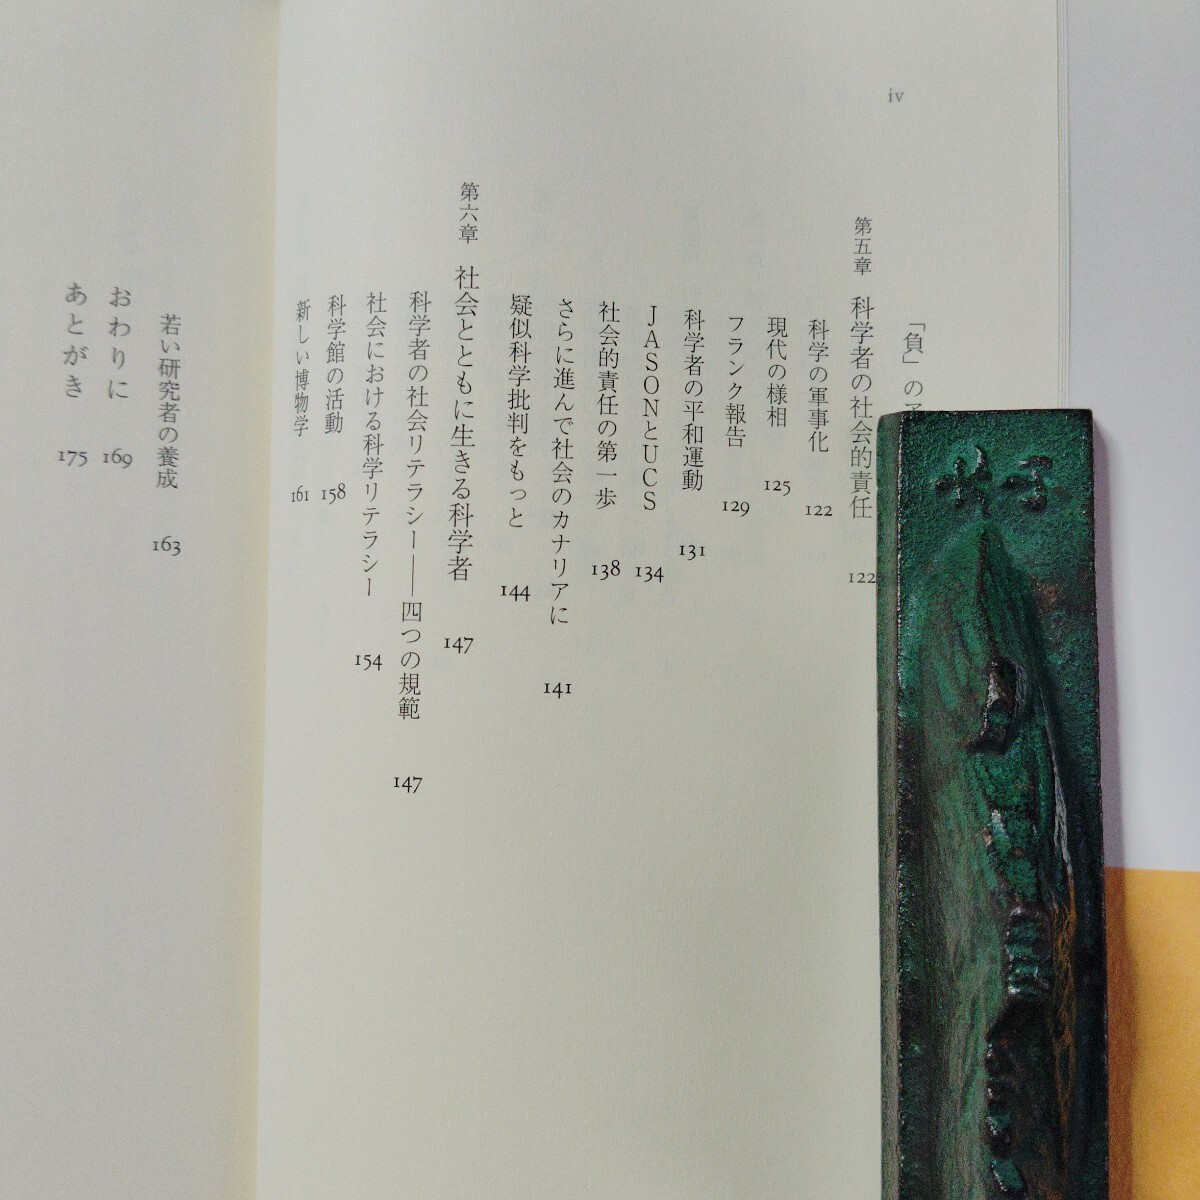 iv
「負」の
第五章 科学者の社会的責任 122
科学の軍事化 122
現代の様相 125
フランク報告 129
科学者の平和運動 131
JASONとUCS 134
社会的責任の第一歩 138
さらに進んで社会のカナリアに 141
疑似科学批判をもっと 144
第六章 社会とともに生きる科学者 147
科学者の社会リテラシー――四つの規範 147
社会における科学リテラシー 154
科学館の活動 158
新しい博物学 161
若い研究者の養成 163
おわりに 169
あとがき 175